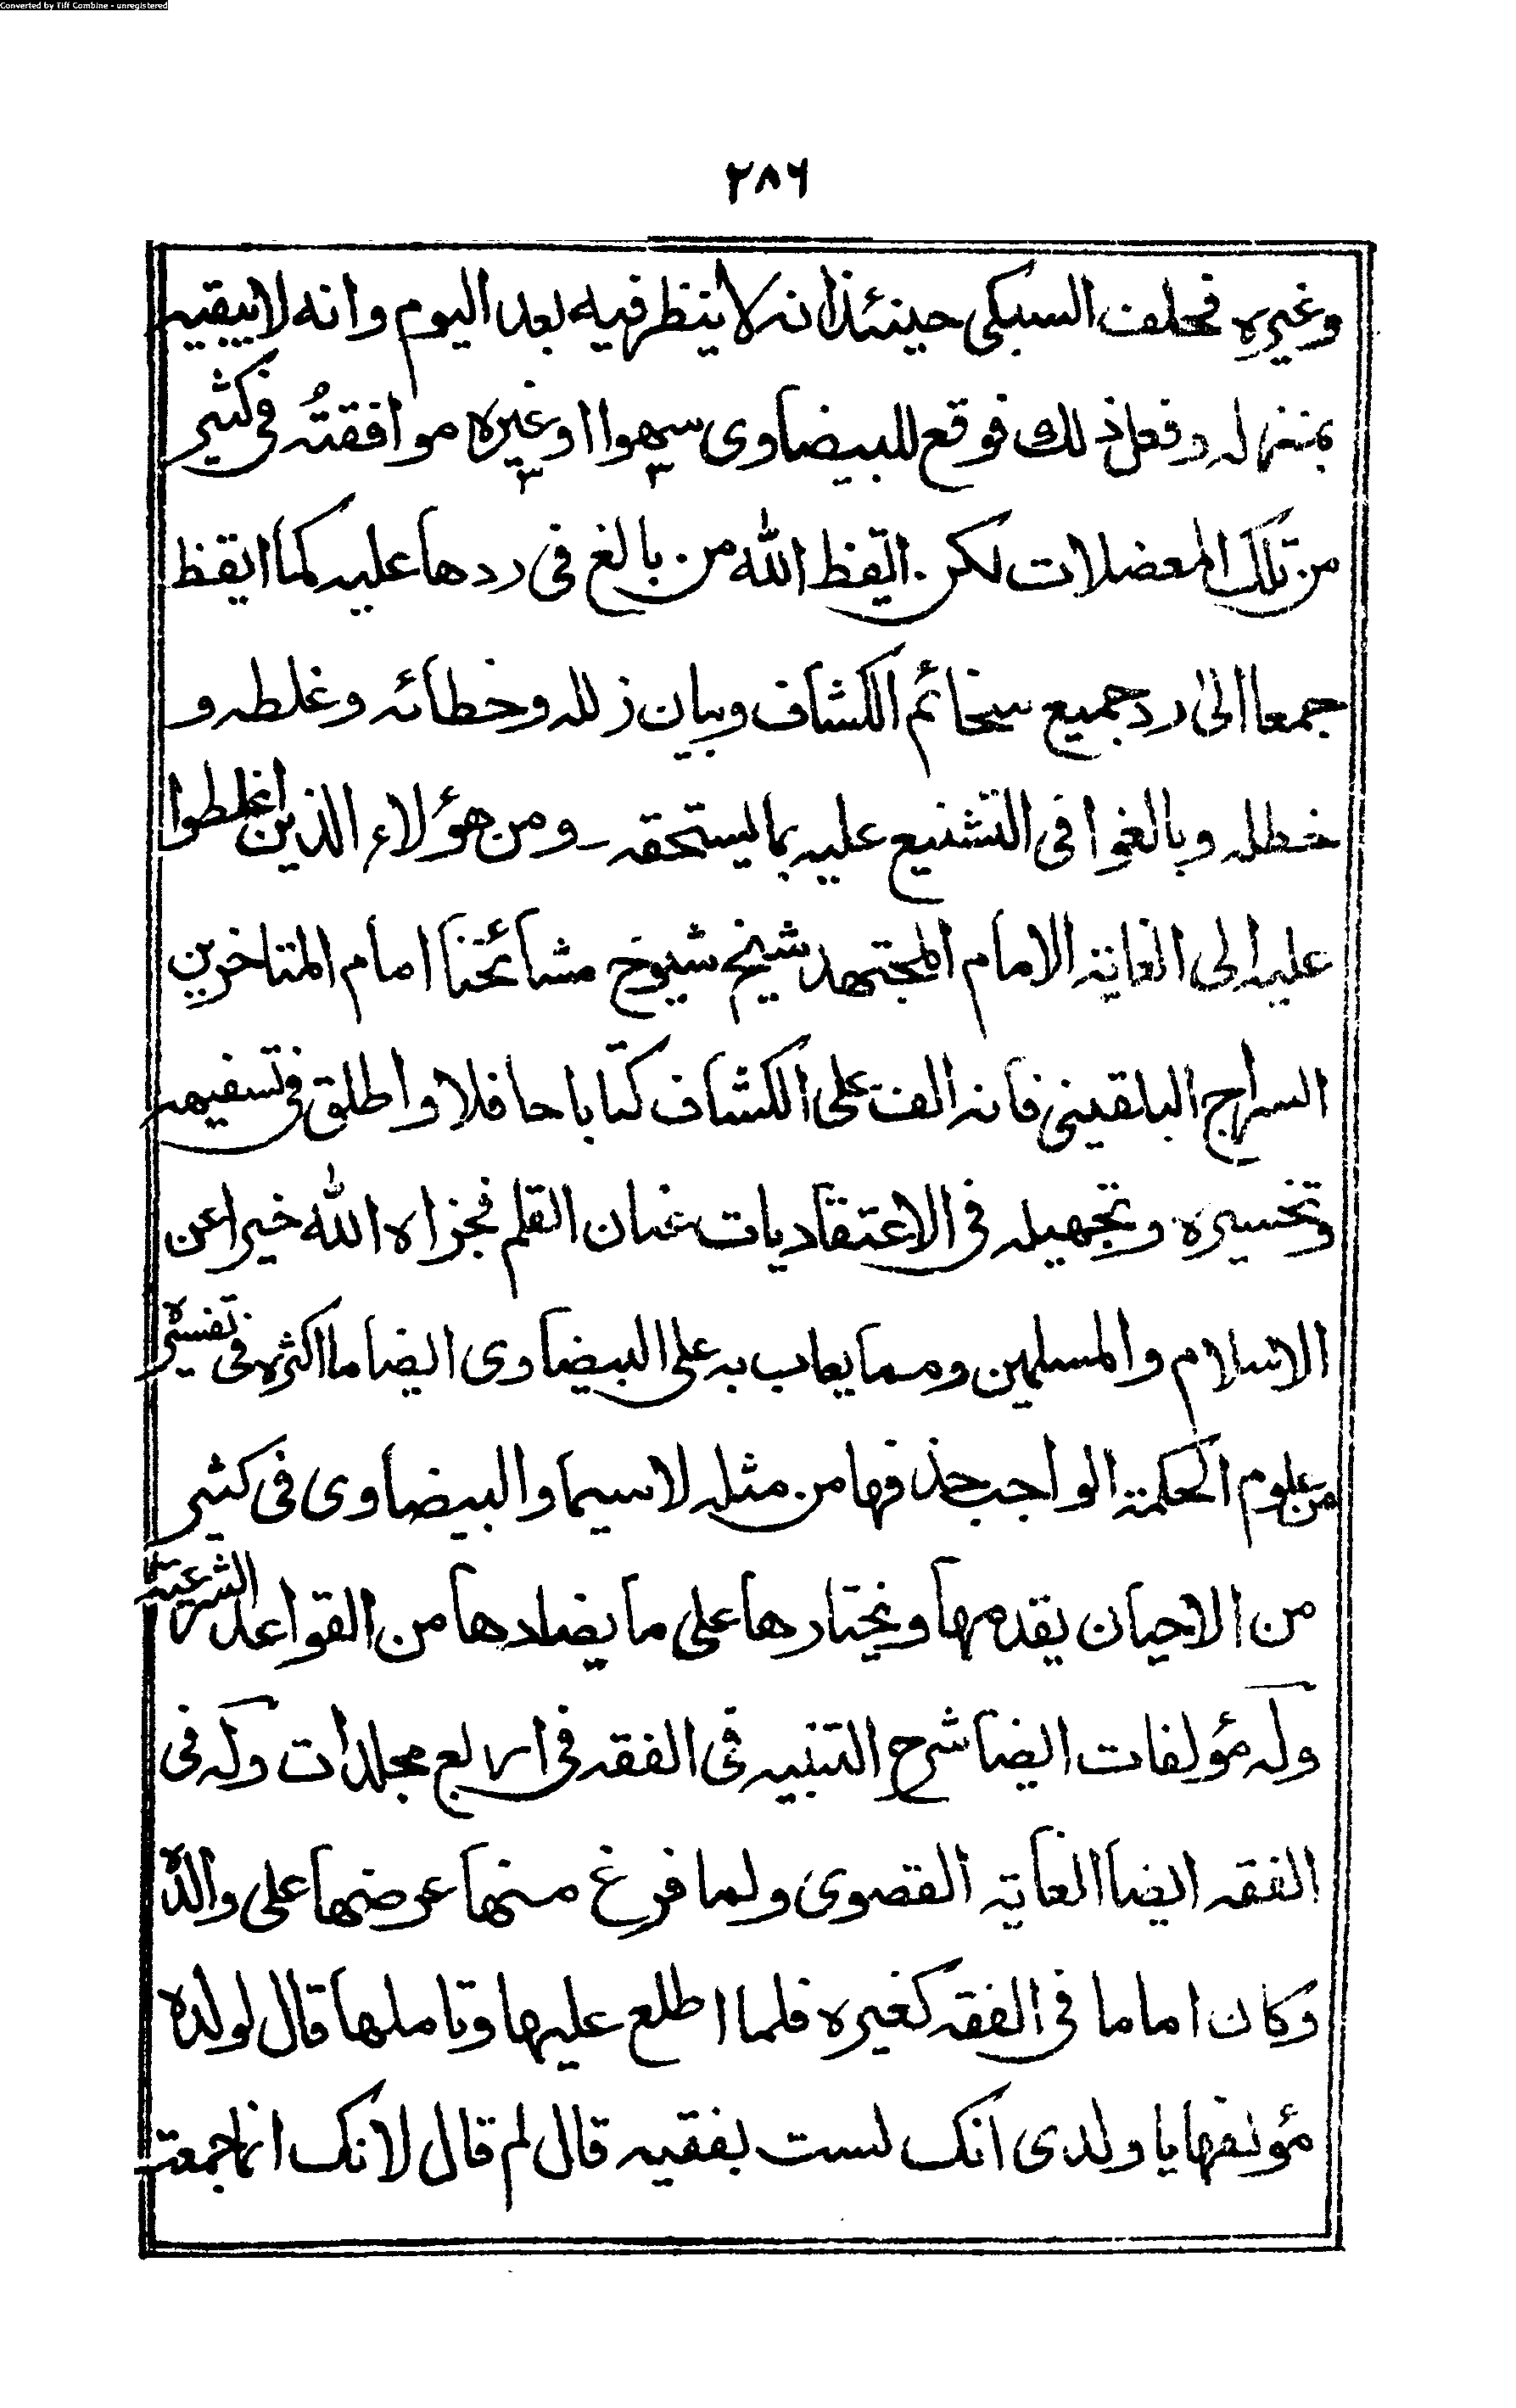 Converted by Tiff Combine - unregistered
٢٨٦
وغيره فحلف السبكى حينئذ انه لا ينظر فيه بعد اليوم وانه لا يبقيه
بمنزله وفعل ذلك فوقع للبيضاوى سهوا او غيره موافقتُه فى كثير
من تلك المعضلات لكن ايقظ الله من بالغ فى ردها عليه كما ايقظ
جمعا الى رد جميع سخائم الكشاف وبيان زلله وخطائه وغلطه و
خطله وبالغوا فى التشنيع عليه بما يستحقه ـ ومن هؤلاء الذين اغلطوا
عليه الى الغاية الامام المجتهد شيخ شيوخ مشائخنا امام المتاخرين
السراج البلقينى فانه الف على الكشاف كتابا حافلا واطلق فى تسفيهه
وتخسيره وتجهيله فى الاعتقاديات عنان القلم فجزاه الله خيرا عن
الاسلام والمسلمين ومما يعاب به على البيضاوى ايضا ما اكثره فى تفسيره
من علوم الحكمة الواجب حذفها من مثله لا سيما والبيضاوى فى كثير
من الاحيان يقدمها ويختارها على ما يضادها من القواعد الشرعية
وله مؤلفات ايضا شرح التنبيه فى الفقه فى اربع مجلدات وله فى
الفقه ايضا الغاية القصوى ولما فرغ منها عرضها على والده
وكان اماما فى الفقه كغيره فلما اطلع عليها وتاملها قال لولده
مؤلفها يا ولدى انك لست بفقيه قال لم قال لانك انما جمعت